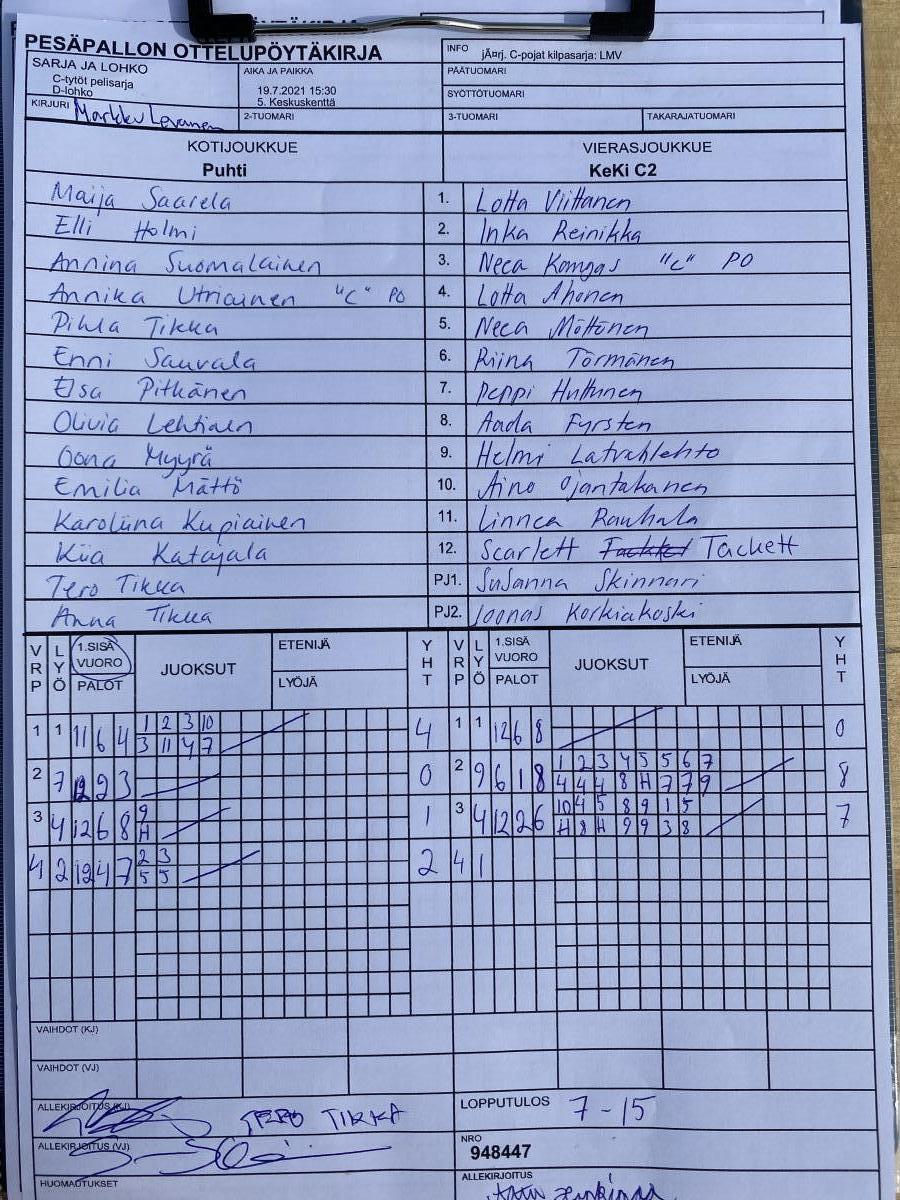 PESÄPALLON OTTELUPÖYTÄKIRJA
INFO jÃ¤rj. C-pojat kilpasarja: LMV
SARJA JA LOHKO
C-tytöt pelisarja
D-lohko
AIKA JA PAIKKA
19.7.2021 15:30
5. Keskuskenttä
PÄÄTUOMARI
SYÖTTÖTUOMARI
KIRJURI Markku Levanen
2-TUOMARI
3-TUOMARI
TAKARAJATUOMARI
KOTIJOUKKUE VIERASJOUKKUE
Puhti KeKi C2
Maija Saarela 1. Lotta Viittanen
Elli Holmi 2. Inka Reinikka
Annina Suomalainen 3. Neea Kangas "C" PO
Annika Utriainen "C" PO 4. Lotta Ahonen
Pihla Tikka 5. Neea Möttönen
Enni Sauvala 6. Riina Törmänen
Elsa Pitkänen 7. Peppi Huttunen
Olivia Lehtinen 8. Aada Fyrsten
Oona Myyrä 9. Helmi Latvalehto
Emilia Mättö 10. Aino Ojantakanen
Karoliina Kupiainen 11. Linnea Rauhala
Kiia Katajala 12. Scarlett Tackett
Tero Tikka PJ1. Susanna Skinnari
Anna Tikka PJ2. Joonas Korkiakoski
VRP LYÖ 1.SISÄ VUORO PALOT JUOKSUT ETENIJÄ LYÖJÄ YHT VRP LYÖ 1.SISÄ VUORO PALOT JUOKSUT ETENIJÄ LYÖJÄ YHT
1 1 11 6 4 1 2 3 10 4 1 1 12 6 8 0
3 11 4 7
2 7 12 2 3 0 2 9 6 1 8 1 2 3 4 5 5 6 7 8
4 4 4 8 H 7 7 9
3 4 12 6 8 9 1 3 4 12 2 6 10 4 5 8 9 1 5 7
H H 8 H 9 9 3 8
4 2 12 4 7 2 3 2 4 1
5 5
VAIHDOT (KJ)
VAIHDOT (VJ)
ALLEKIRJOITUS (KJ) TERO TIKKA
LOPPUTULOS 7-15
ALLEKIRJOITUS (VJ)
NRO
948447
HUOMAUTUKSET
ALLEKIRJOITUS